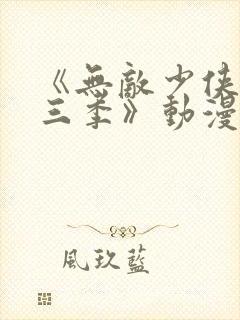 《無敵少俠
三季》動漫
風玖藍